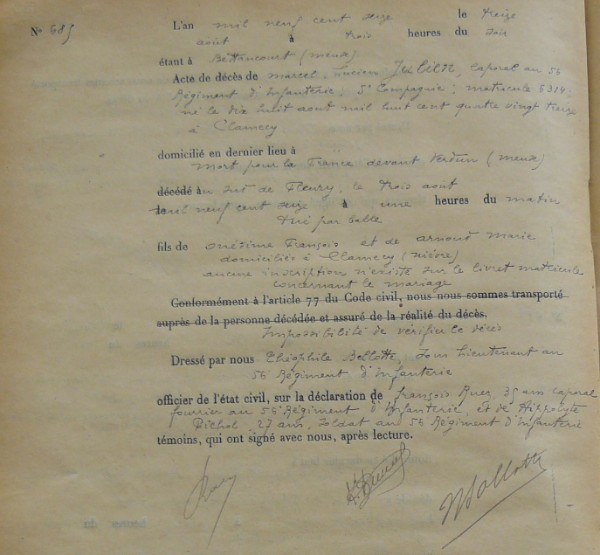 N° 685
L'an mil neuf cent seize le treize
août à trois heures du soir
étant à Bettancourt (meuse)
Acte de décès de marcel, Lucien, caporal au 56
Régiment d'Infanterie; 5e Compagnie; matricule 6314;
né le dix huit aout mil huit cent quatre vingt treize
à Clamecy
domicilié en dernier lieu à
mort pour la France devant Verdun (meuse)
décédé au sud de Fleury, le trois aout
mil neuf cent seize à une heures du matin
tué par balle
fils de onésime François et de arnoult marie
domiciliés à Clamecy (nièvre)
aucune inscription n'existe sur le livret matricule
concernant le mariage
Conformément à l'article 77 du Code civil, nous nous sommes transporté
auprès de la personne décédée et assuré de la réalité du décès.
Impossibilité de vérifier le décès
Dressé par nous Théophile Bellotte, Sous Lieutenant au
56 Régiment d'Infanterie
officier de l'état civil, sur la déclaration de françois, 35 ans caporal
fourrier au 56 Régiment d'Infanterie, et de Hippolyte
27 ans, soldat au 56 Régiment d'Infanterie
témoins, qui ont signé avec nous, après lecture.